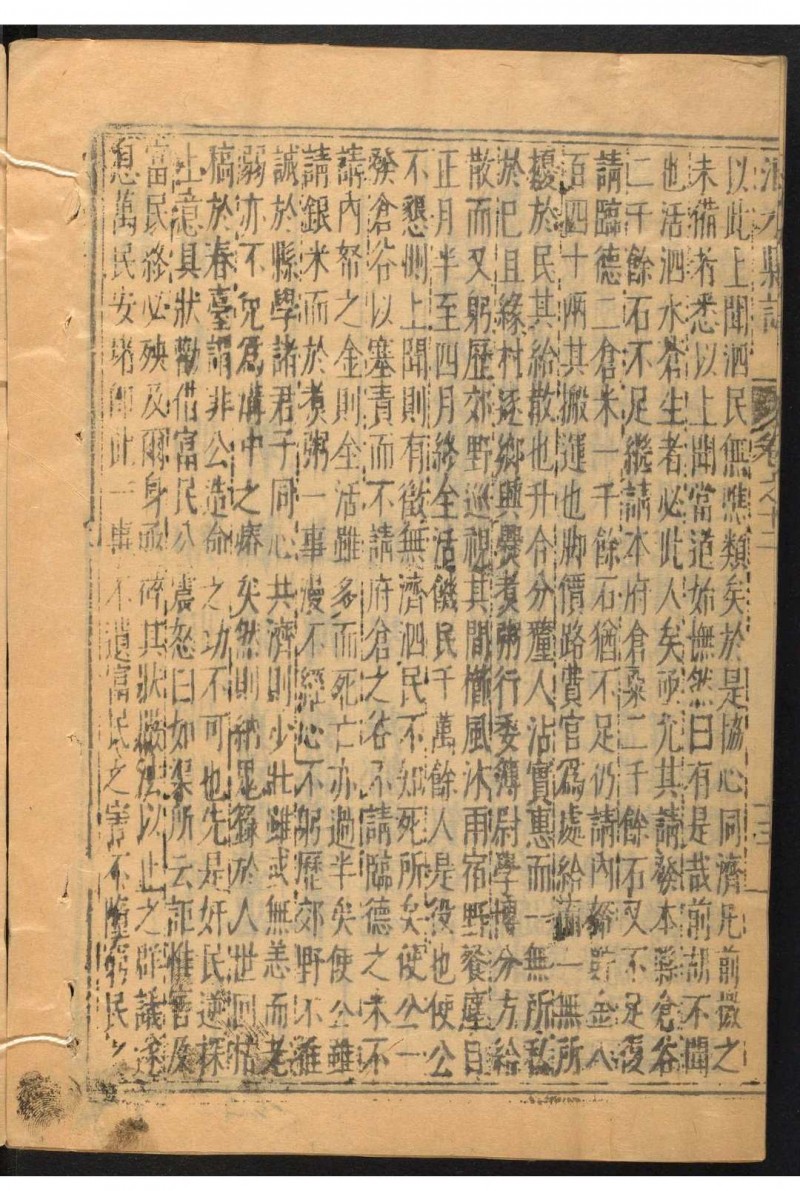 泗水縣誌 卷之十二
以此上聞泗民無噍類矣於是協心同濟凡前徴之
未備者悉以上聞當道始憮然曰有是哉前胡不聞
也活泗水蒼生者必此人矣亟允其請發本縣倉谷
二千餘石不足繼請本府倉粟二千餘石又不足復
請臨德二倉米一千餘石猶不足仍請內帑貯金八
百四十兩其搬運也脚價路費官爲處給而一無所
擾於民其給散也升合分釐人沾實惠而一無所私
於巳且緣村逐鄉興爨煮粥行委簿尉學博分方給
散而又躬歷郊野巡視其間櫛風沐雨宿野餐塵自
正月半至四月終全活饑民千萬餘人是役也使公
不懇惻上聞則有徵無濟泗民不如死所矣使公一
發倉谷以塞責而不請府倉之谷不請臨德之米不
請內帑之金則全活雖多而死亡亦過半矣使公雖
請銀米而於煮粥一事漫不經心不躬歷郊野不推
誠於縣學諸君子同心共濟則少壯雖或無恙而老
弱亦不免爲溝中之瘠矣然則納 於人世回枯
稿於春臺謂非公造命之功不可也先是奸民逆探
上意具狀勸借富民公震怒曰如渠所云詎惟害及
富民終必殃及爾身 碎其狀嚴法以止之群議遂
息萬民安堵卽此一事不遺富民之害不墮窮民之